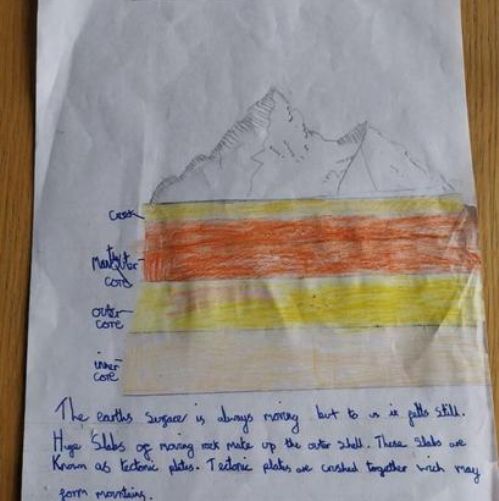 Crust
core
outer
core
inner
core
The earths surface is always moving but to us it fells still.
Huge Slabs of moving rock make up the outer shell. These slabs are
Known as tectonic plates. Tectonic plates are crashed together wich may
form mountains.